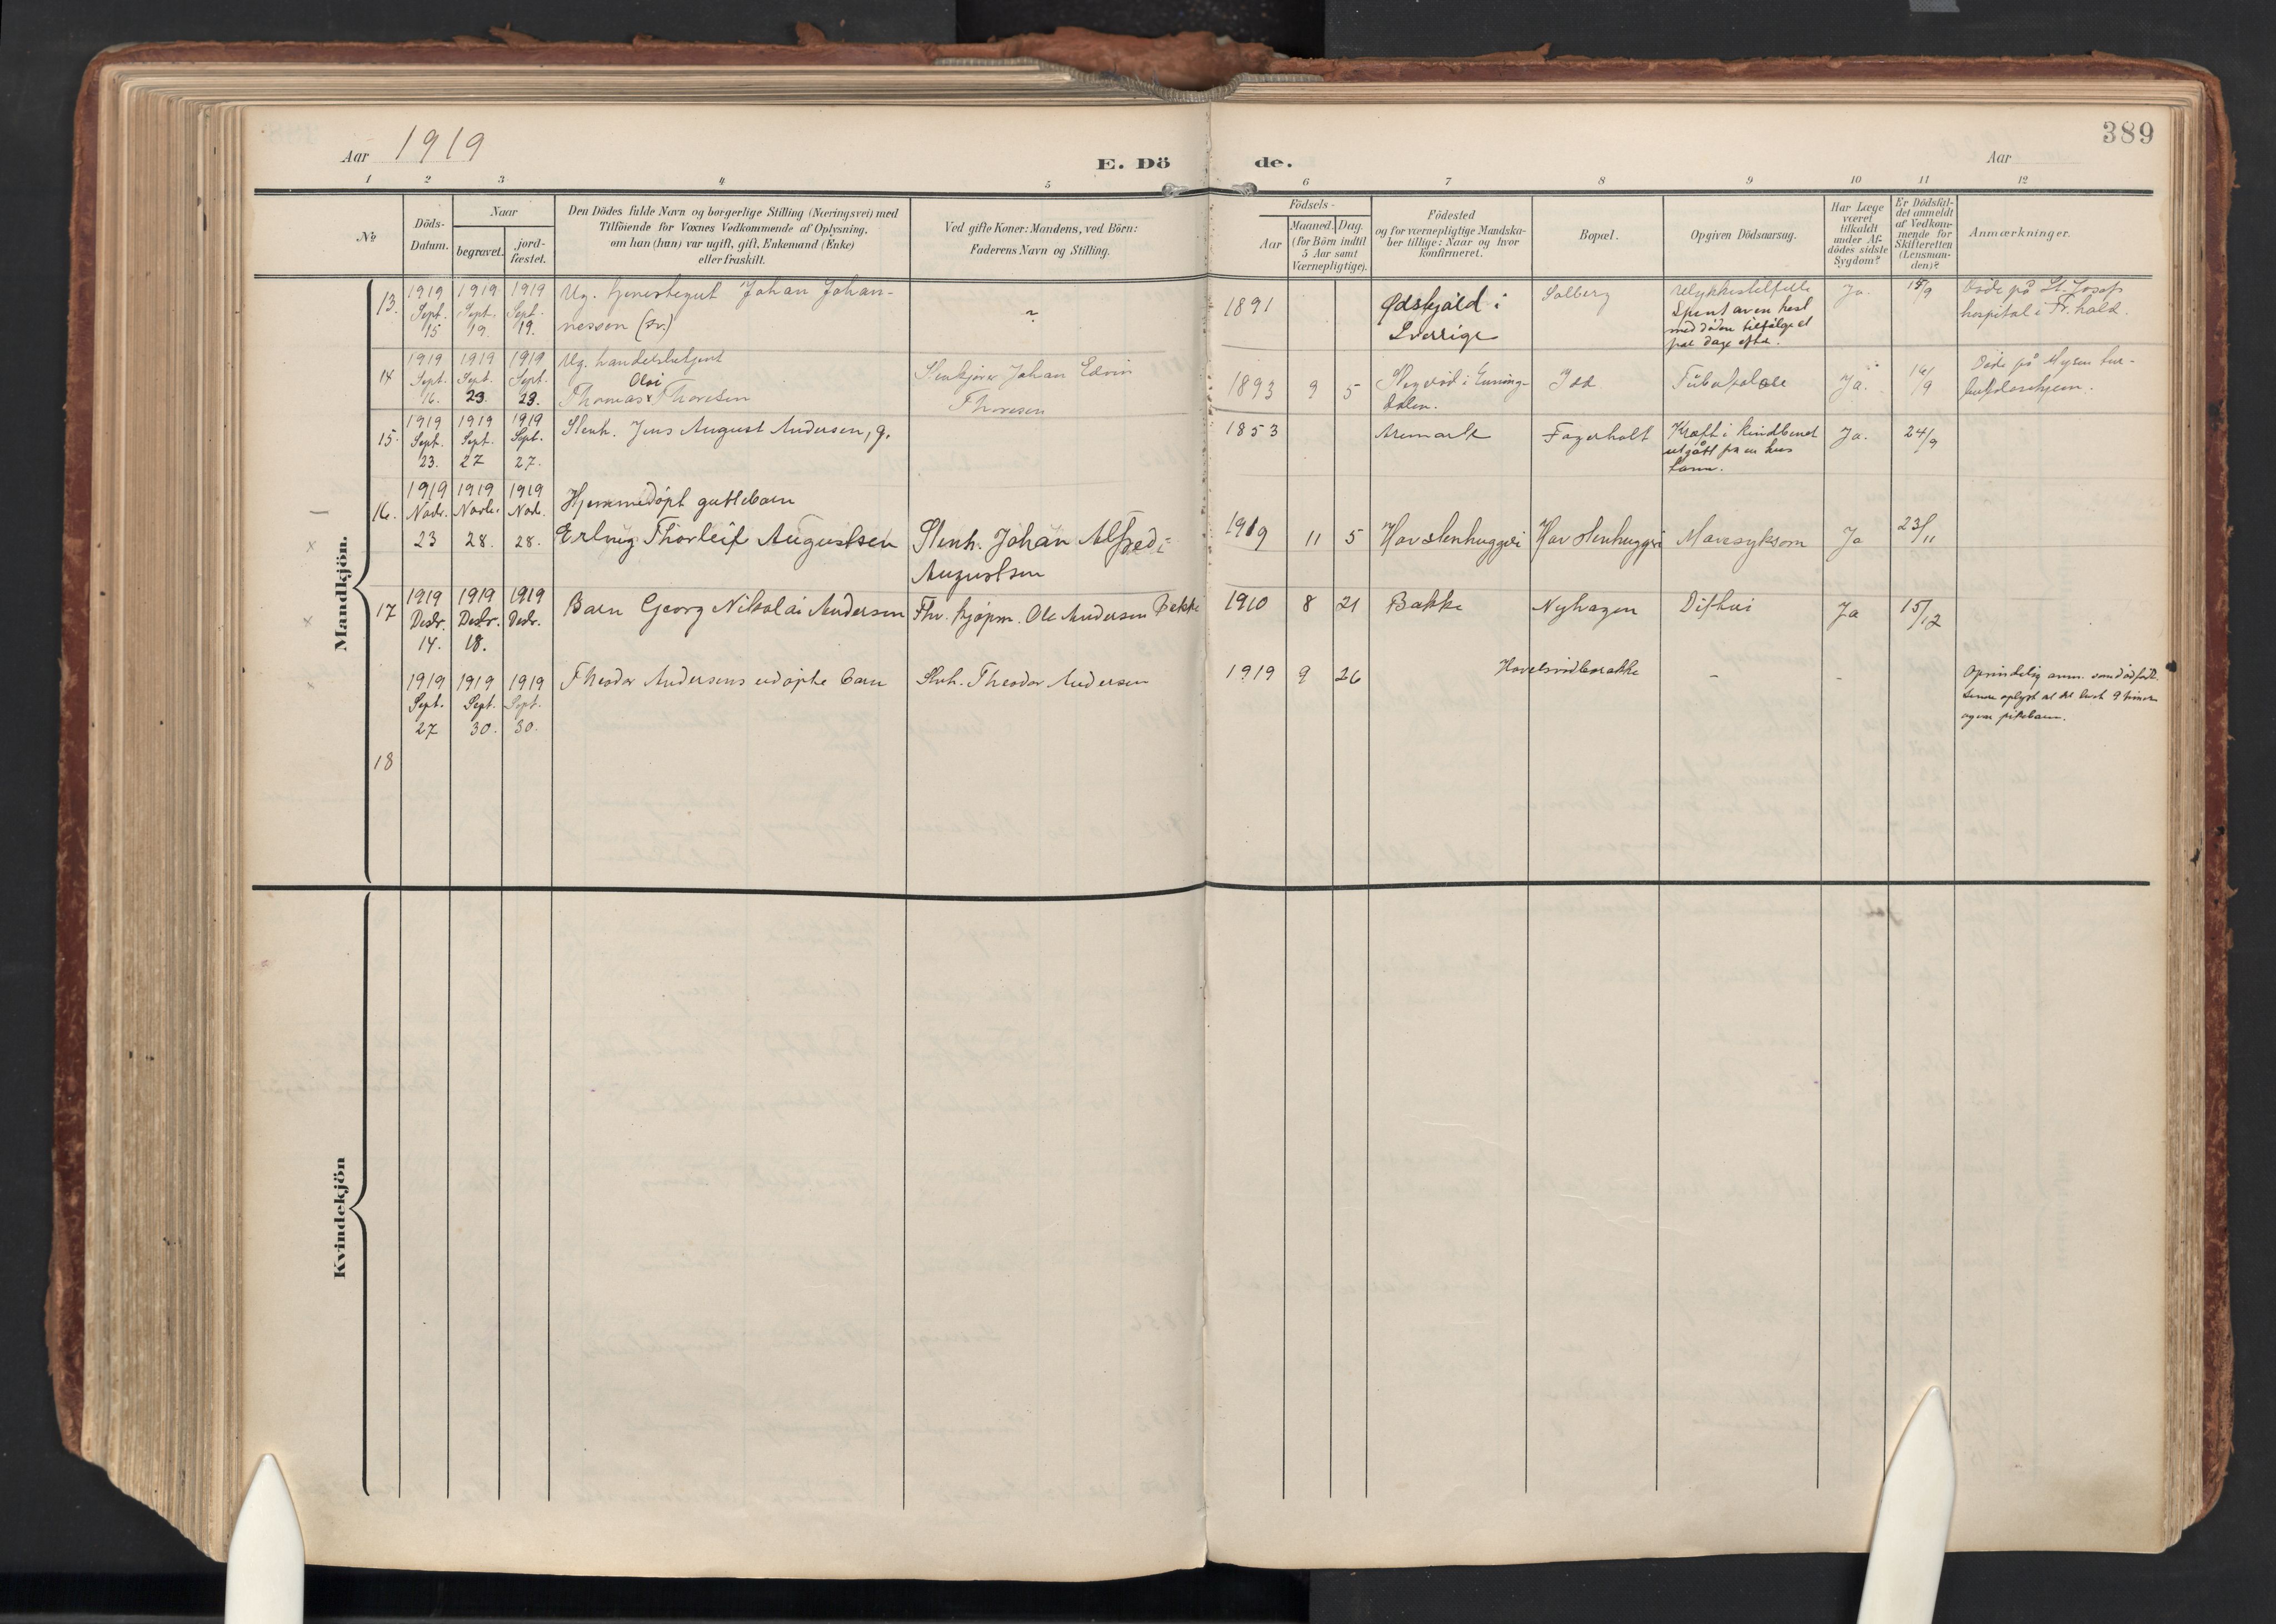 389
Aar 1919
E. Dö de.
Aar
1 2 3 4 5 6 7 8 9 10 11 12
No
Döds-
Datum.
Naar
begravet.
jord-
fæstet.
Den Dödes fulde Navn og borgerlige Stilling (Næringsvei) med
Tilföiende for Voxnes Vedkommende af Oplysning,
om han (hun) var ugift, gift, Enkemand (Enke)
eller fraskilt.
Ved gifte Koner: Mandens, ved Börn:
Faderens Navn og Stilling.
Födsels-
Aar
Maaned. Dag.
(for Börn indtil
5 Aar samt
Værnepligtige).
Födested
og for værnepligtige Mandska-
ber tillige: Naar og hvor
konfirmeret.
Bopæl.
Opgiven Dödsaarsag.
Har Læge
været
tilkaldt
under Af-
dödes sidste
Sygdom?
Er Dödsfal-
det anmeldt
af Vedkom-
mende for
Skifteretten
(Lensman-
den)?
Anmærkninger.
Mandkjön.
13. 1919 Sept. 15
1919 Sept. 19
1919 Sept. 19.
Ug. Johan Johan-
nessen
~
1891
i
Sverrige
Solberg
Spent av en hest
med døden tilfølge et
par dage efter.
Ja.
15/9
Døde på St. Josefs
hospital i Fr.hald.
14 1919 Sept. 16.
1919 Sept. 23
1919 Sept. 23.
Ug. handelsbetjent
Olai
Thomas Thoresen
Stenkjører Johan Edvin
Thoresen
1893 9 5
i Enning-
dalen.
Idd
Ja.
16/9
Døde på Mysen tur-
15. 1919 Sept. 23.
1919 Sept. 27
1919 Sept. 27.
Stenh. Jens August Andersen, g.
1853
Aremark
Fagerholt
Kræft i kindbenet
utgått fra en
tann.
Ja.
24/9
16. 1919 Novbr. 23
1919 Novbr. 28.
1919 Novb. 28.
Hjemmedøpt guttebarn
Erling Thorleif Augustsen
Stenh. Johan Alfred
Augustsen
1919 11 5
Hov stenhuggeri
Hov stenhuggeri
Mavesykdom
Ja
23/11
17 1919 Desbr. 14.
1919 Desbr. 18.
1919 Desbr.
Barn Georg Nikolai Andersen
Fhv. kjøpm. Ole Andersen Bakke
1910 8 21
Bakke
Nyhagen
Difteri
Ja
15/12
1919 Sept. 27
1919 Sept. 30.
1919 Sept. 30.
Theodor Andersens udøpte barn
Stenh. Theodor Andersen
1919 9 26
-
-
Oprindelig anm. som dødfødt.
Senere oplyst at det levet 9 timer
og var pikebarn.
18
Kvindekjön